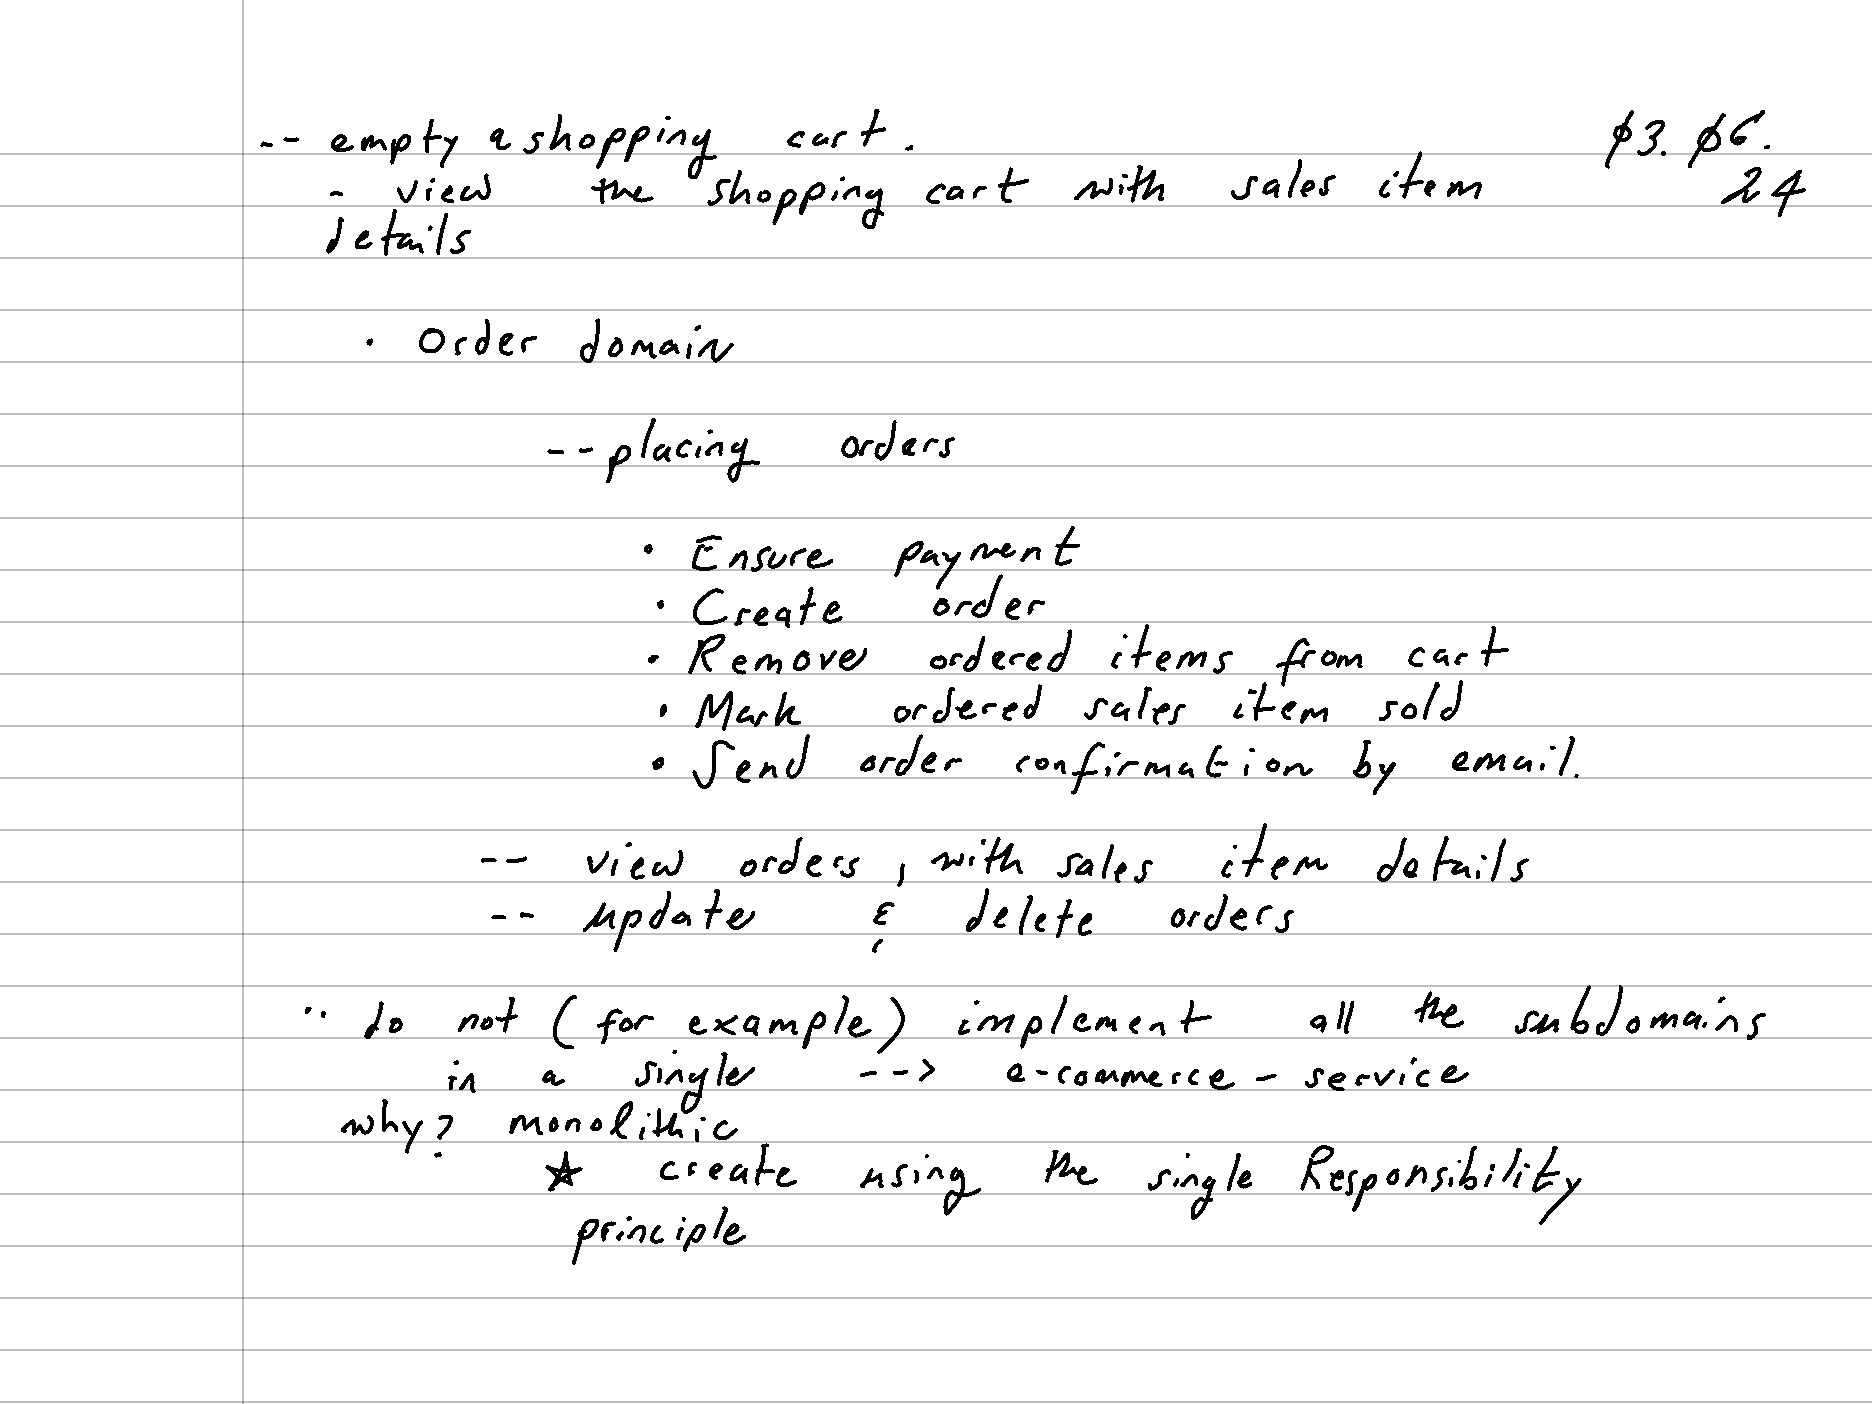 -- empty a shopping cart. ø3. ø6.
- view the shopping cart with sales item 24
details
· Order domain
-- placing orders
· Ensure payment
· Create order
· Remove ordered items from cart
· Mark ordered sales item sold
· Send order confirmation by email.
-- view orders, with sales item details
-- update & delete orders
·· do not (for example) implement all the subdomains
in a single --> e-commerce - service
why? monolithic
☆ create using the single Responsibility
principle